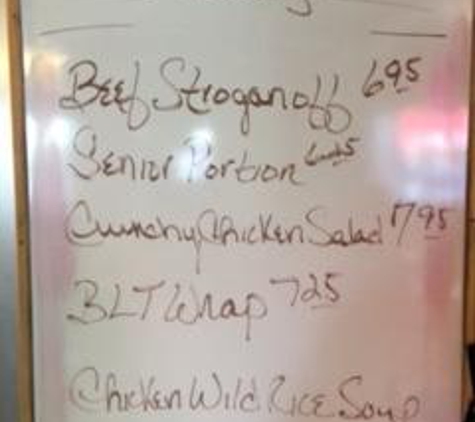 Beef Stroganoff 695
Senior Portion
Crunchy Chicken Salad 795
BLT Wrap 725
Chicken Wild Rice Soup